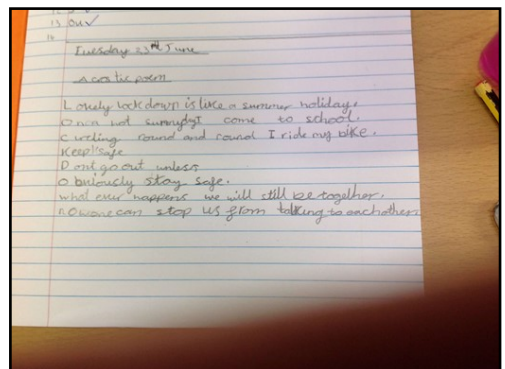 13 Ou✓
14
Tuesday 23rd June
Acostic poem
Lonely lock down is like a summer holiday.
On a hot sunnydyI come to school.
Curcling round and round I ride my bike.
Keep safe
Dont go out unless
Obniously stay safe.
what ever happens we will still be together.
nowone can stop us from talking to eachother